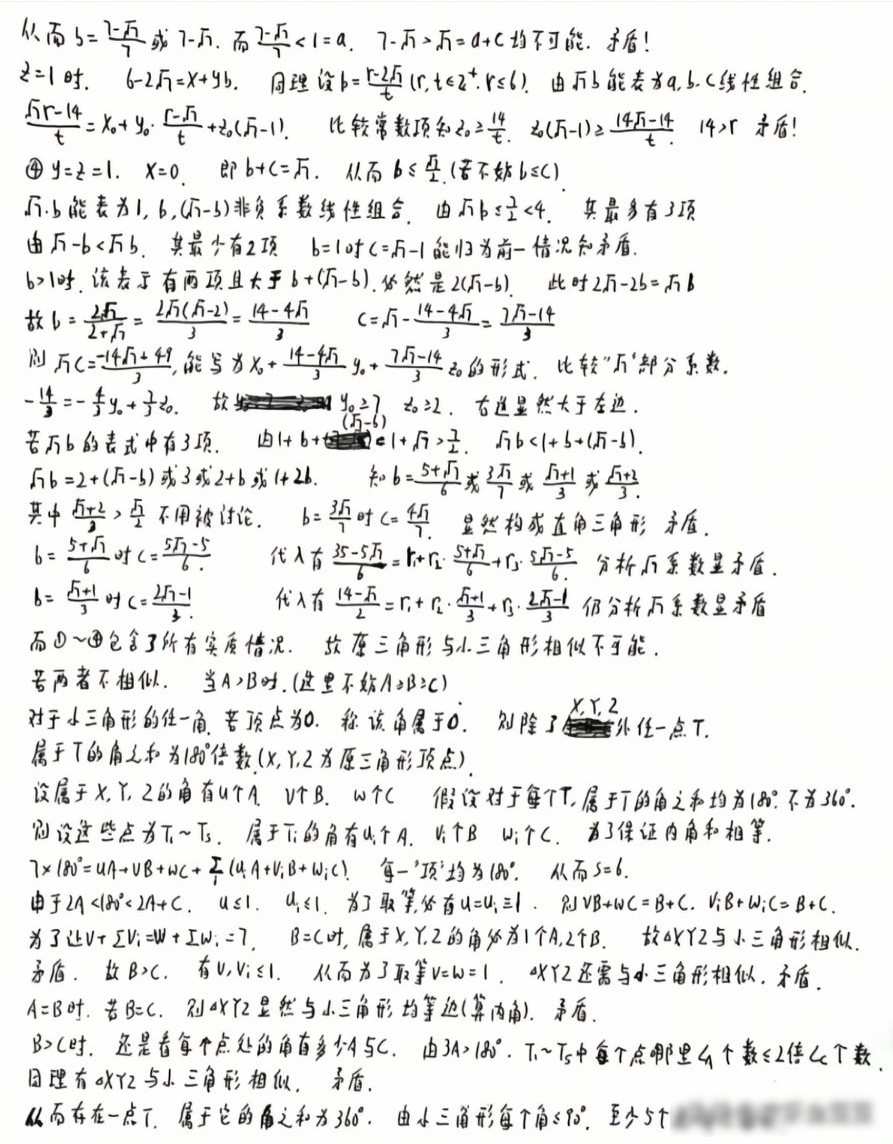 从而b=(7-√7)/7或7-√7. 而(7-√7)/7<1=a. 7-√7>√7=a+c均不可能. 矛盾!
z=1时. 6-2√7=x+yb. 同理设b=(r-2√7)/t (r,t∈Z⁺. r≤6). 由√7b能表为a,b,c线性组合.
(√7r-14)/t=x₀+y₀·(r-√7)/t+z₀(√7-1). 比较常数项知z₀≥14/t. z₀(√7-1)≥(14√7-14)/t. 14>r 矛盾!
④ y=z=1. x=0. 即b+c=√7. 从而b≤√7/2.(若不妨b≤c)
√7·b能表为1,b,(√7-b)非负系数线性组合. 由√7b≤7/2<4. 其最多有3项
由√7-b<√7b. 其最少有2项 b=1时c=√7-1能归为前一情况知矛盾.
b>1时. 该表示有两项且大于b+(√7-b).必然是2(√7-b). 此时2√7-2b=√7b
故b=2√7/(2+√7)=2√7(√7-2)/3=(14-4√7)/3 c=√7-(14-4√7)/3=(7√7-14)/3
则√7c=(-14√7+49)/3,能写为x₀+(14-4√7)/3 y₀+(7√7-14)/3 z₀的形式. 比较"√7"部分系数.
-14/3=-4/3y₀+7/3z₀. 故 y₀≥7 z₀≥2. 右边显然大于左边.
若√7b的表式中有3项. 由1+b+(√7-b)=1+√7>7/2. √7b<1+b+(√7-b).
√7b=2+(√7-b)或3或2+b或1+2b. 知b=(5+√7)/6或3√7/7或(√7+1)/3或(√7+2)/3.
其中(√7+2)/3>√7/2不用被讨论. b=3√7/7时c=4√7/7. 显然构成直角三角形 矛盾.
b=(5+√7)/6时c=(5√7-5)/6. 代入有(35-5√7)/6=r₁+r₂·(5+√7)/6+r₃·(5√7-5)/6. 分析√7系数显矛盾.
b=(√7+1)/3时c=(2√7-1)/3. 代入有(14-√7)/2=r₁+r₂·(√7+1)/3+r₃·(2√7-1)/3 仍分析√7系数显矛盾
而①~④包含了所有实质情况. 故原三角形与小三角形相似不可能.
若两者不相似. 当A>B时.(这里不妨A≥B≥C)
对于小三角形的任一角.若顶点为O. 称该角属于O. 则除了X,Y,Z外任一点T.
属于T的角之和为180°倍数(X,Y,Z为原三角形顶点).
设属于X,Y,Z的角有u个A. v个B. w个C 假设对于每个T,属于T的角之和均为180°.不为360°.
则设这些点为T₁~Tₛ. 属于Tᵢ的角有uᵢ个A. vᵢ个B wᵢ个C. 为了保证内角和相等.
7×180°=uA+vB+wC+∑(uᵢA+vᵢB+wᵢC). 每一"项"均为180°. 从而s=6.
由于2A<180°<2A+C. u≤1. uᵢ≤1. 为了取等,必有u=uᵢ≡1. 则vB+wC=B+C. vᵢB+wᵢC=B+C.
为了让v+∑vᵢ=w+∑wᵢ=7. B=C时,属于X,Y,Z的角必为1个A,2个B. 故△XYZ与小三角形相似.
矛盾. 故B>C. 有v,vᵢ≤1. 从而为了取等v=w=1. △XYZ还需与小三角形相似.矛盾.
A=B时. 若B=C. 则△XYZ显然与小三角形均等边(算内角). 矛盾.
B>C时. 还是看每个点处的角有多少A与C. 由3A>180°. T₁~Tₛ中每个点哪里∠A个数≤2倍∠C个数.
同理有△XYZ与小三角形相似. 矛盾.
从而存在一点T. 属于它的角之和为360°. 由小三角形每个角≤90°. 至少5个